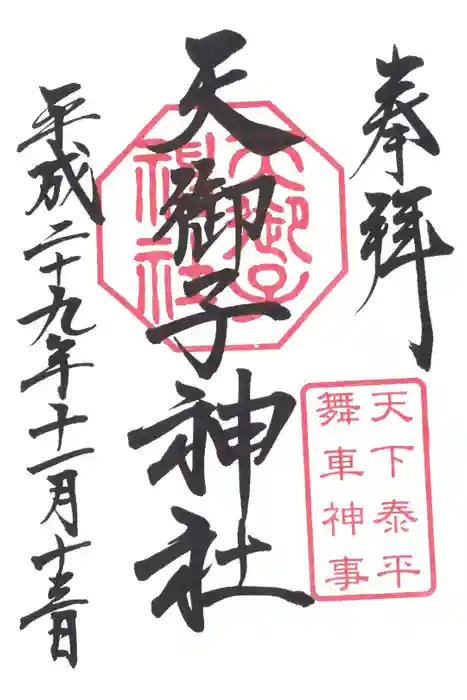 奉拝
天下泰平
舞車神事
天御子神社
天御子
神社
平成二十九年十一月十五日